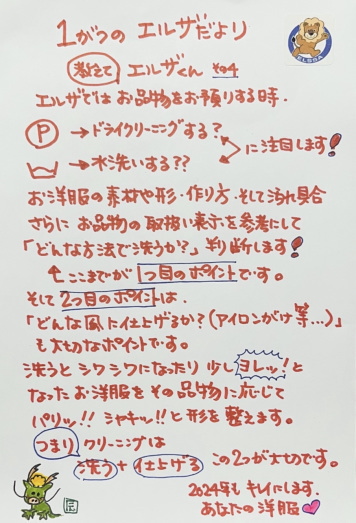 1がつの エルザだより
教えて エルザくん その4
エルザでは お品物をお預りする時、
Ⓟ →ドライクリーニングする?
→水洗いする??
に注目します!
お洋服の素材や形・作り方、そして汚れ具合
さらに お品物の取扱い表示を参考にして
「どんな方法で洗うか?」判断します!
↑ここまでが 1つ目のポイントです。
そして 2つ目のポイントは、
「どんな風に仕上げるか?(アイロンがけ等…)」
も大切なポイントです。
洗うと シワシワになったり 少し ヨレッ! と
なった お洋服を その品物に応じて
パリッ!! シャキッ!! と形を整えます。
つまり クリーニングは
洗う + 仕上げる この2つが大切です。
2024年も キレイにします、
あなたの洋服